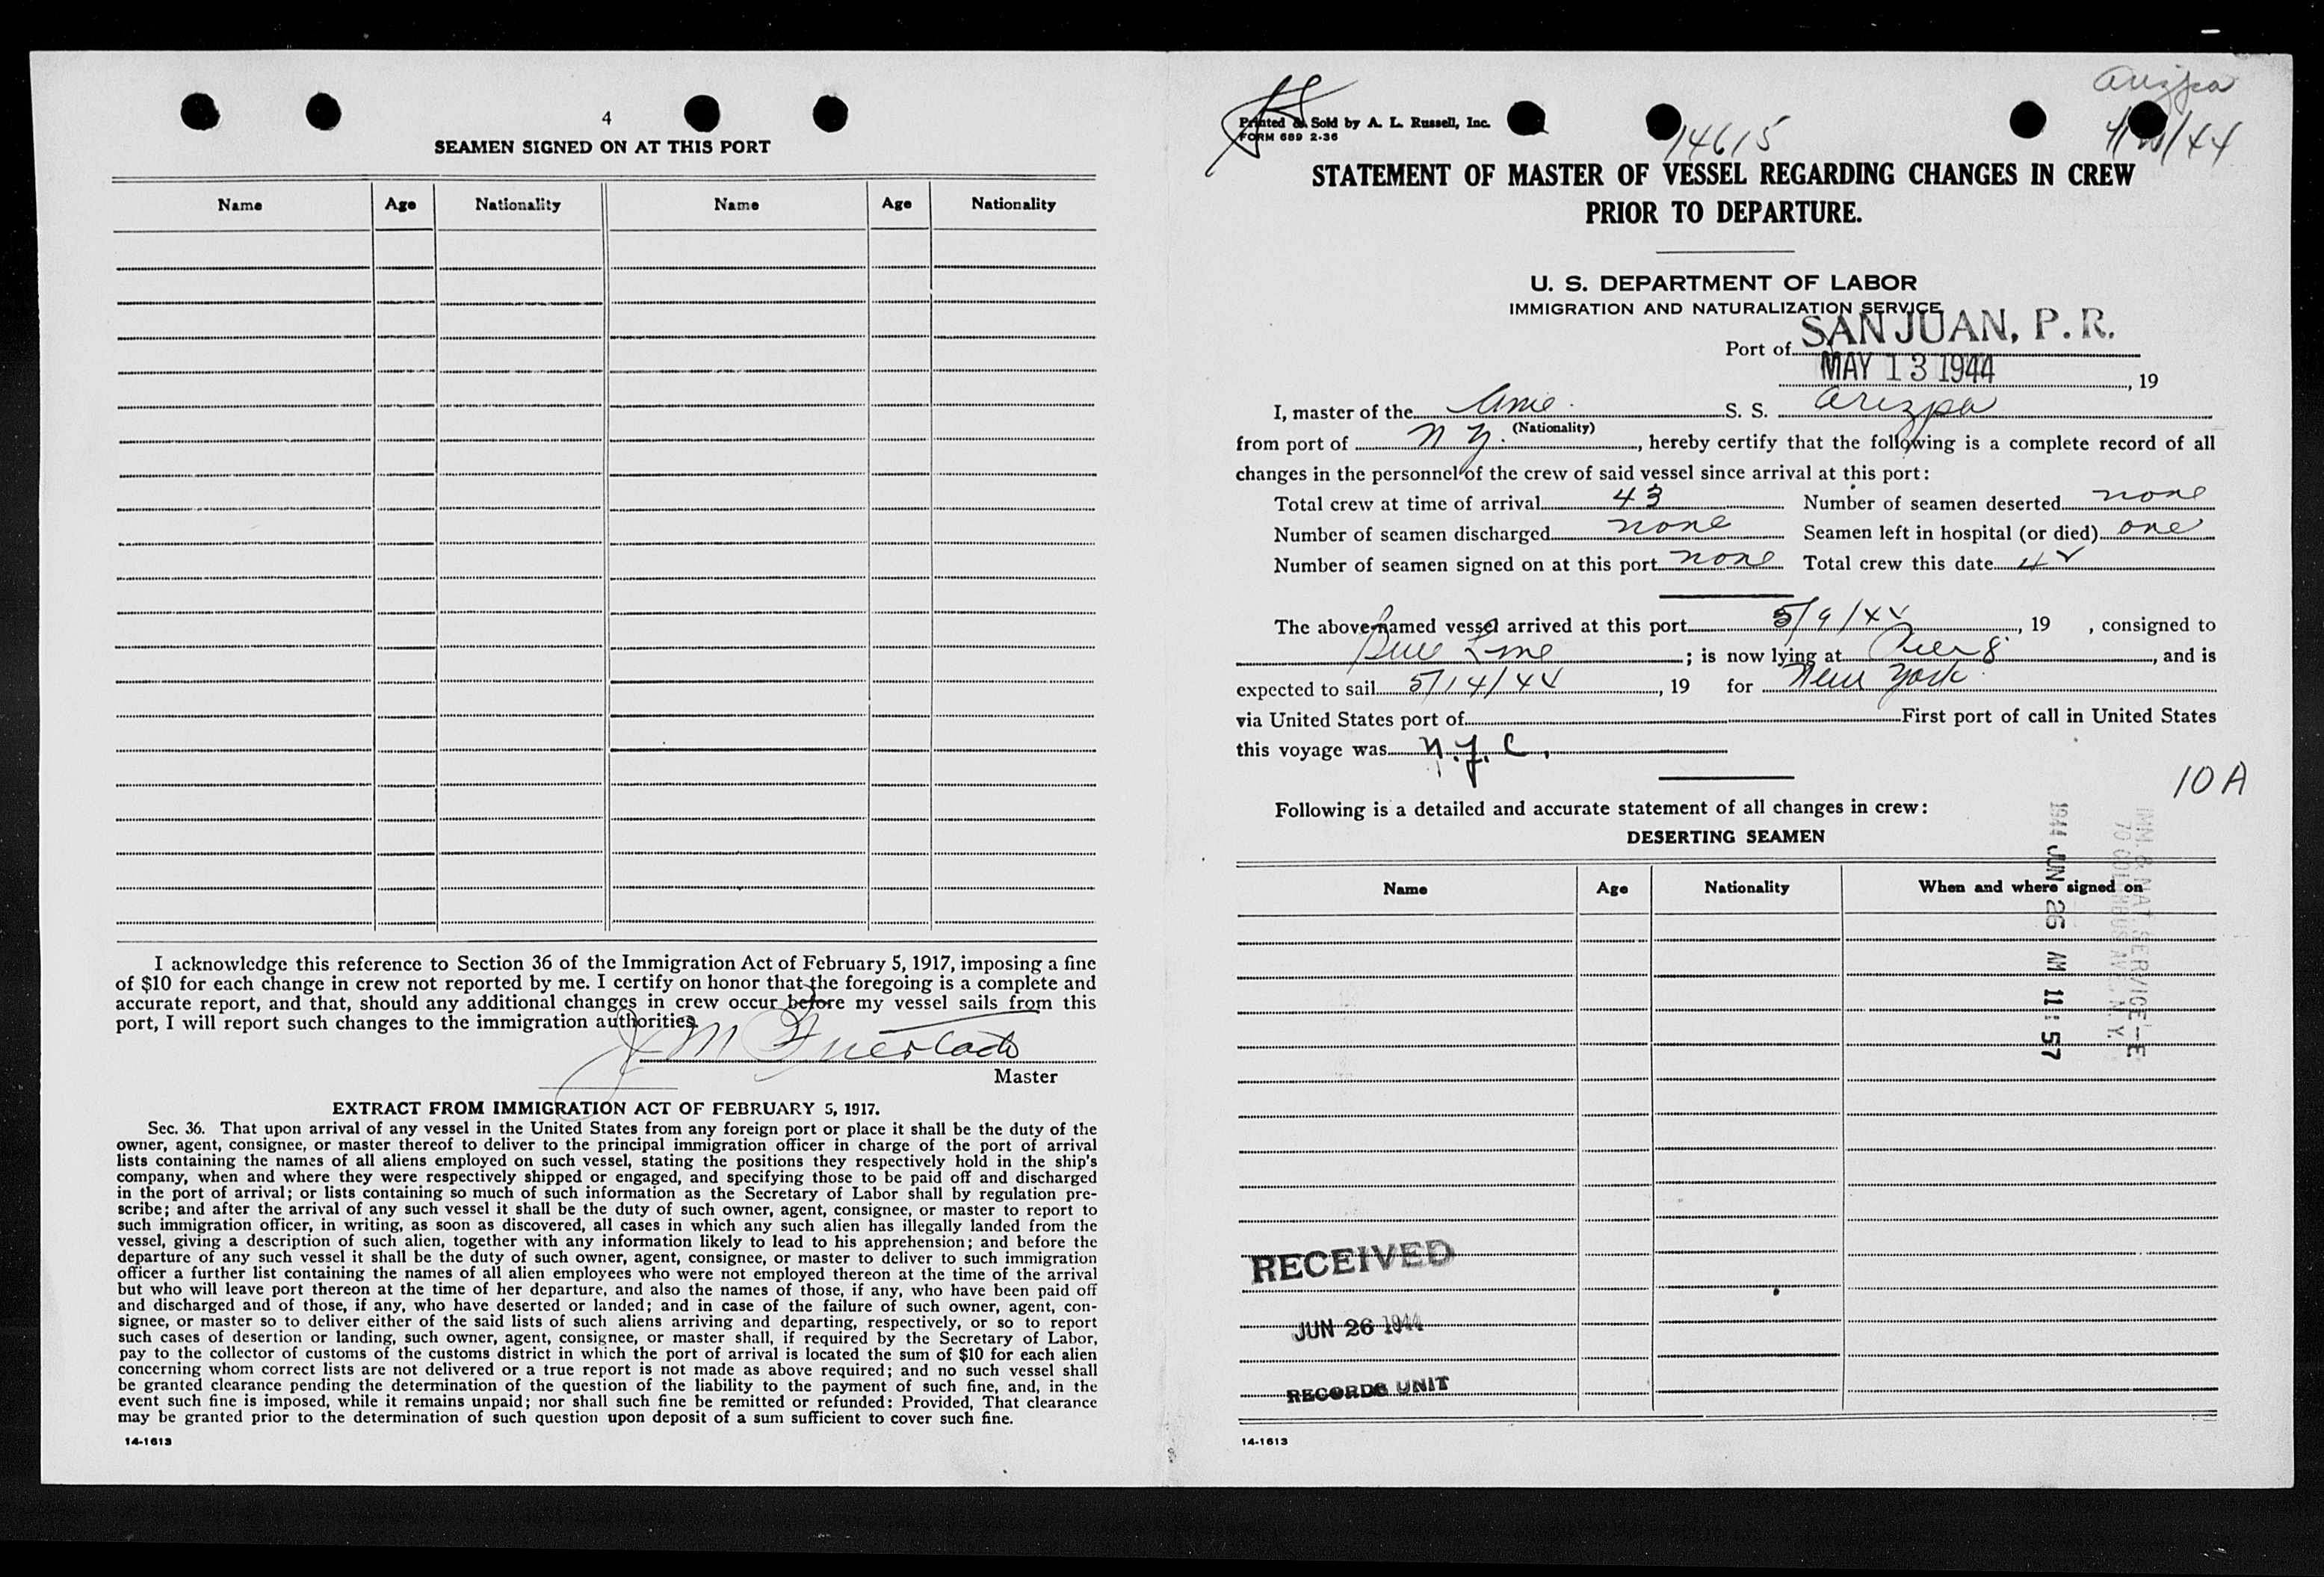 4
SEAMEN SIGNED ON AT THIS PORT
Name Age Nationality Name Age Nationality
I acknowledge this reference to Section 36 of the Immigration Act of February 5, 1917, imposing a fine
of $10 for each change in crew not reported by me. I certify on honor that the foregoing is a complete and
accurate report, and that, should any additional changes in crew occur before my vessel sails from this
port, I will report such changes to the immigration authorities.
J M
Master
EXTRACT FROM IMMIGRATION ACT OF FEBRUARY 5, 1917.
Sec. 36. That upon arrival of any vessel in the United States from any foreign port or place it shall be the duty of the
owner, agent, consignee, or master thereof to deliver to the principal immigration officer in charge of the port of arrival
lists containing the names of all aliens employed on such vessel, stating the positions they respectively hold in the ship's
company, when and where they were respectively shipped or engaged, and specifying those to be paid off and discharged
in the port of arrival; or lists containing so much of such information as the Secretary of Labor shall by regulation pre-
scribe; and after the arrival of any such vessel it shall be the duty of such owner, agent, consignee, or master to report to
such immigration officer, in writing, as soon as discovered, all cases in which any such alien has illegally landed from the
vessel, giving a description of such alien, together with any information likely to lead to his apprehension; and before the
departure of any such vessel it shall be the duty of such owner, agent, consignee, or master to deliver to such immigration
officer a further list containing the names of all alien employees who were not employed thereon at the time of the arrival
but who will leave port thereon at the time of her departure, and also the names of those, if any, who have been paid off
and discharged and of those, if any, who have deserted or landed; and in case of the failure of such owner, agent, con-
signee, or master so to deliver either of the said lists of such aliens arriving and departing, respectively, or so to report
such cases of desertion or landing, such owner, agent, consignee, or master shall, if required by the Secretary of Labor,
pay to the collector of customs of the customs district in which the port of arrival is located the sum of $10 for each alien
concerning whom correct lists are not delivered or a true report is not made as above required; and no such vessel shall
be granted clearance pending the determination of the question of the liability to the payment of such fine, and, in the
event such fine is imposed, while it remains unpaid; nor shall such fine be remitted or refunded: Provided, That clearance
may be granted prior to the determination of such question upon deposit of a sum sufficient to cover such fine.
14-1613
Arizpa
Printed & Sold by A. L. Russell, Inc.
FORM 689 2-36
14615
STATEMENT OF MASTER OF VESSEL REGARDING CHANGES IN CREW
PRIOR TO DEPARTURE.
U. S. DEPARTMENT OF LABOR
IMMIGRATION AND NATURALIZATION SERVICE
Port of SAN JUAN, P. R.
MAY 13 1944, 19
I, master of the Ame. S. S. Arizpa
(Nationality)
from port of N Y., hereby certify that the following is a complete record of all
changes in the personnel of the crew of said vessel since arrival at this port:
Total crew at time of arrival 43 Number of seamen deserted none
Number of seamen discharged none Seamen left in hospital (or died) one
Number of seamen signed on at this port none Total crew this date 42
The above-named vessel arrived at this port 5/9/44, 19 , consigned to
Bull Line; is now lying at Pier 8, and is
expected to sail 5/14/44, 19 for New York
via United States port of First port of call in United States
this voyage was N.Y.C.
10A
Following is a detailed and accurate statement of all changes in crew:
DESERTING SEAMEN
Name Age Nationality When and where signed on
1944 JUN 26 AM 11:57
IMM. & NAT. SERVICE-E
70 COLUMBUS AVE. N. Y.
RECEIVED
JUN 26 1944
RECORDS UNIT
14-1613